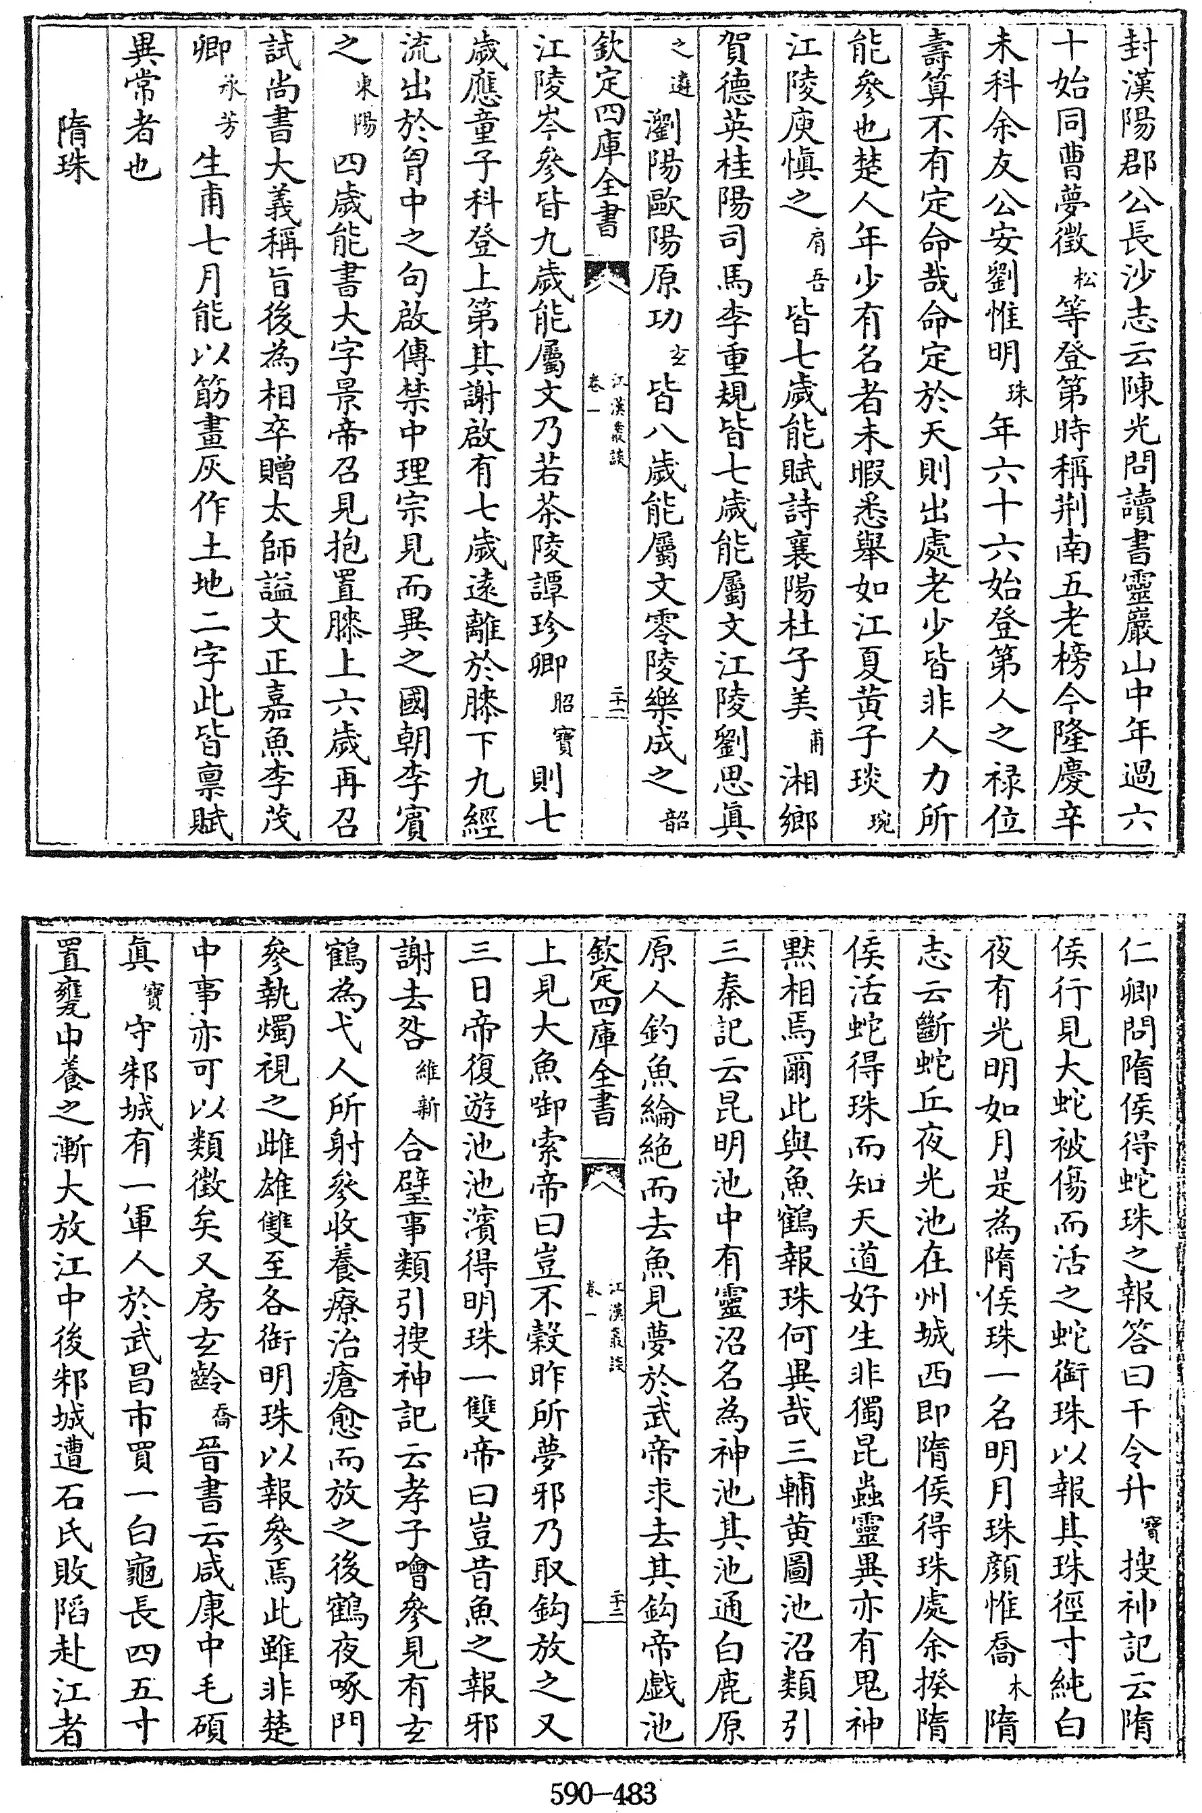 封漢陽郡公長沙志云陳光問讀書靈巖山中年過六
十始同曹夢徵松等登第時稱荆南五老榜今隆慶辛
未科余友公安劉惟明珠年六十六始登第人之禄位
壽算不有定命哉命定於天則出處老少皆非人力所
能參也楚人年少有名者未暇悉舉如江夏黃子琰琬
江陵庾慎之肩吾皆七歲能賦詩襄陽杜子美甫湘鄉
賀德英桂陽司馬李重規皆七歲能屬文江陵劉思真
之遴瀏陽歐陽原功玄皆八歲能屬文零陵樂成之韶
欽定四庫全書
江漢叢談
卷一
二十二
江陵岑參皆九歲能屬文乃若茶陵譚珍卿昭寶則七
歲應童子科登上第其謝啟有七歲遠離於膝下九經
流出於胷中之句啟傳禁中理宗見而異之國朝李賓
之東陽四歲能書大字景帝召見抱置膝上六歲再召
試尚書大義稱旨後為相卒贈太師謚文正嘉魚李茂
卿承芳生甫七月能以筯畫灰作土地二字此皆禀賦
異常者也
隋珠
仁卿問隋侯得蛇珠之報答曰干令升寶搜神記云隋
侯行見大蛇被傷而活之蛇銜珠以報其珠徑寸純白
夜有光明如月是為隋侯珠一名明月珠顏惟喬木隋
志云斷蛇丘夜光池在州城西即隋侯得珠處余揆隋
侯活蛇得珠而知天道好生非獨昆蟲靈異亦有鬼神
黙相焉爾此與魚鶴報珠何異哉三輔黃圖池沼類引
三秦記云昆明池中有靈沼名為神池其池通白鹿原
原人釣魚綸絶而去魚見夢於武帝求去其鈎帝戲池
欽定四庫全書
江漢叢談
卷一
二十三
上見大魚啣索帝曰豈不穀昨所夢邪乃取鈎放之又
三日帝復遊池池濱得明珠一雙帝曰豈昔魚之報邪
謝去咎維新合璧事類引搜神記云孝子噲參見有玄
鶴為弋人所射參收養療治瘡愈而放之後鶴夜啄門
參執燭視之雌雄雙至各銜明珠以報參焉此雖非楚
中事亦可以類徵矣又房玄齡喬晉書云咸康中毛碩
眞寶守邾城有一軍人於武昌市買一白龜長四五寸
置甕中養之漸大放江中後邾城遭石氏敗陷赴江者
590-483